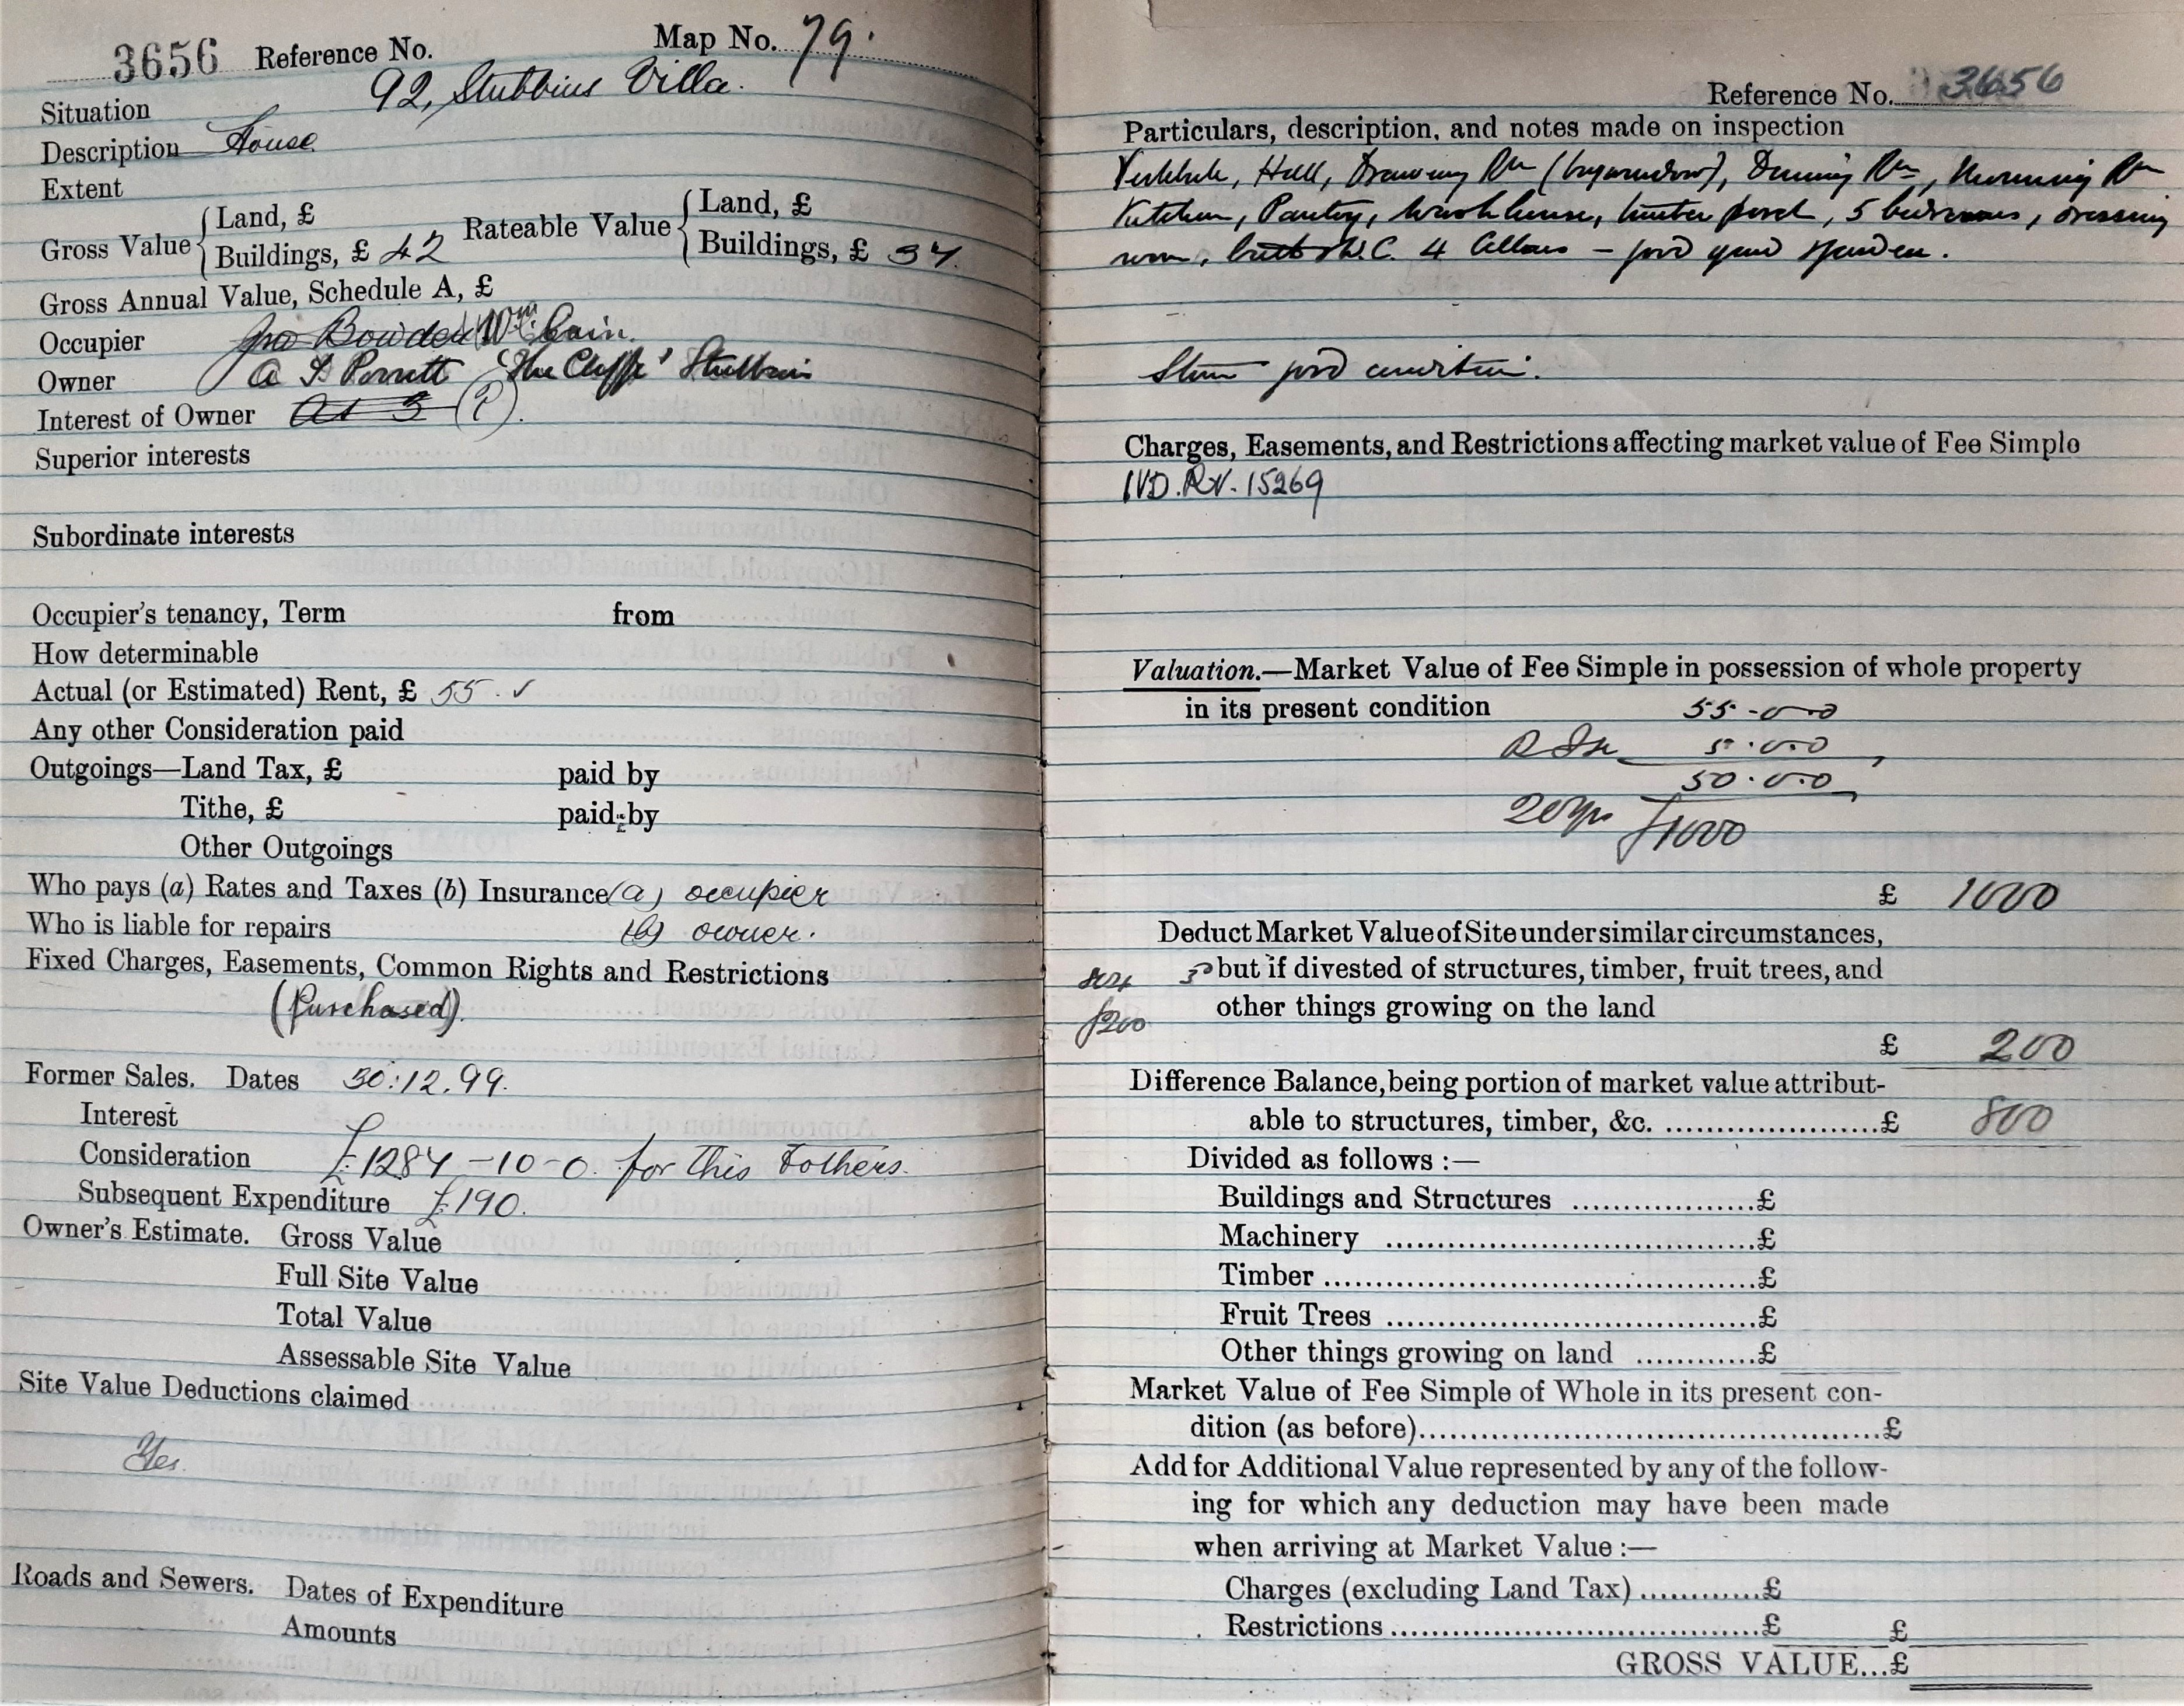 3656 Reference No. Map No. 79.
Situation 92, Stubbins Villa.
Description House
Extent
Gross Value { Land, £
Buildings, £ 42
Rateable Value { Land, £
Buildings, £ 34.
Gross Annual Value, Schedule A, £
Occupier Jno Bowden Wm Cain.
Owner A Porritt 'The Cliffe' Stubbins
Interest of Owner (?).
Superior interests
Subordinate interests
Occupier's tenancy, Term from
How determinable
Actual (or Estimated) Rent, £ 55. ✓
Any other Consideration paid
Outgoings—Land Tax, £ paid by
Tithe, £ paid by
Other Outgoings
Who pays (a) Rates and Taxes (b) Insurance (a) occupier
Who is liable for repairs (b) owner.
Fixed Charges, Easements, Common Rights and Restrictions
(Purchased).
Former Sales. Dates 30:12.99.
Interest
Consideration £1284-10-0. for this & others.
Subsequent Expenditure £190.
Owner's Estimate. Gross Value
Full Site Value
Total Value
Assessable Site Value
Site Value Deductions claimed
Yes.
Roads and Sewers. Dates of Expenditure
Amounts
Reference No. 3656
Particulars, description, and notes made on inspection
Vestibule, Hall, Drawing Rm (baywindow), Dining Rm, Morning Rm
Kitchen, Pantry, Washhouse, timber porch, 5 bedrooms, dressing
room, bath & W.C. 4 Cellars – good yard & garden.
Stone good condition.
Charges, Easements, and Restrictions affecting market value of Fee Simple
IVD.RV. 15269
Valuation.—Market Value of Fee Simple in possession of whole property
in its present condition 55-0-0
5.0.0
50.0.0
20yrs £1000
£ 1000
Deduct Market Value of Site under similar circumstances,
but if divested of structures, timber, fruit trees, and
other things growing on the land
£200
£ 200
Difference Balance, being portion of market value attribut-
able to structures, timber, &c. ......................£ 800
Divided as follows :—
Buildings and Structures ...................£
Machinery ....................................£
Timber ..........................................£
Fruit Trees ....................................£
Other things growing on land ............£
Market Value of Fee Simple of Whole in its present con-
dition (as before)..............................................£
Add for Additional Value represented by any of the follow-
ing for which any deduction may have been made
when arriving at Market Value :—
Charges (excluding Land Tax) ............£
Restrictions ....................................£ £
GROSS VALUE...£